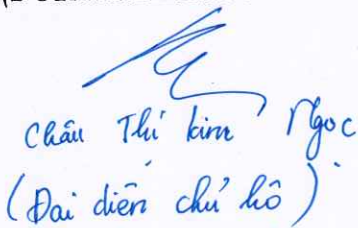 Châu Thí kim Ngọc
(Đại diện chủ hộ)